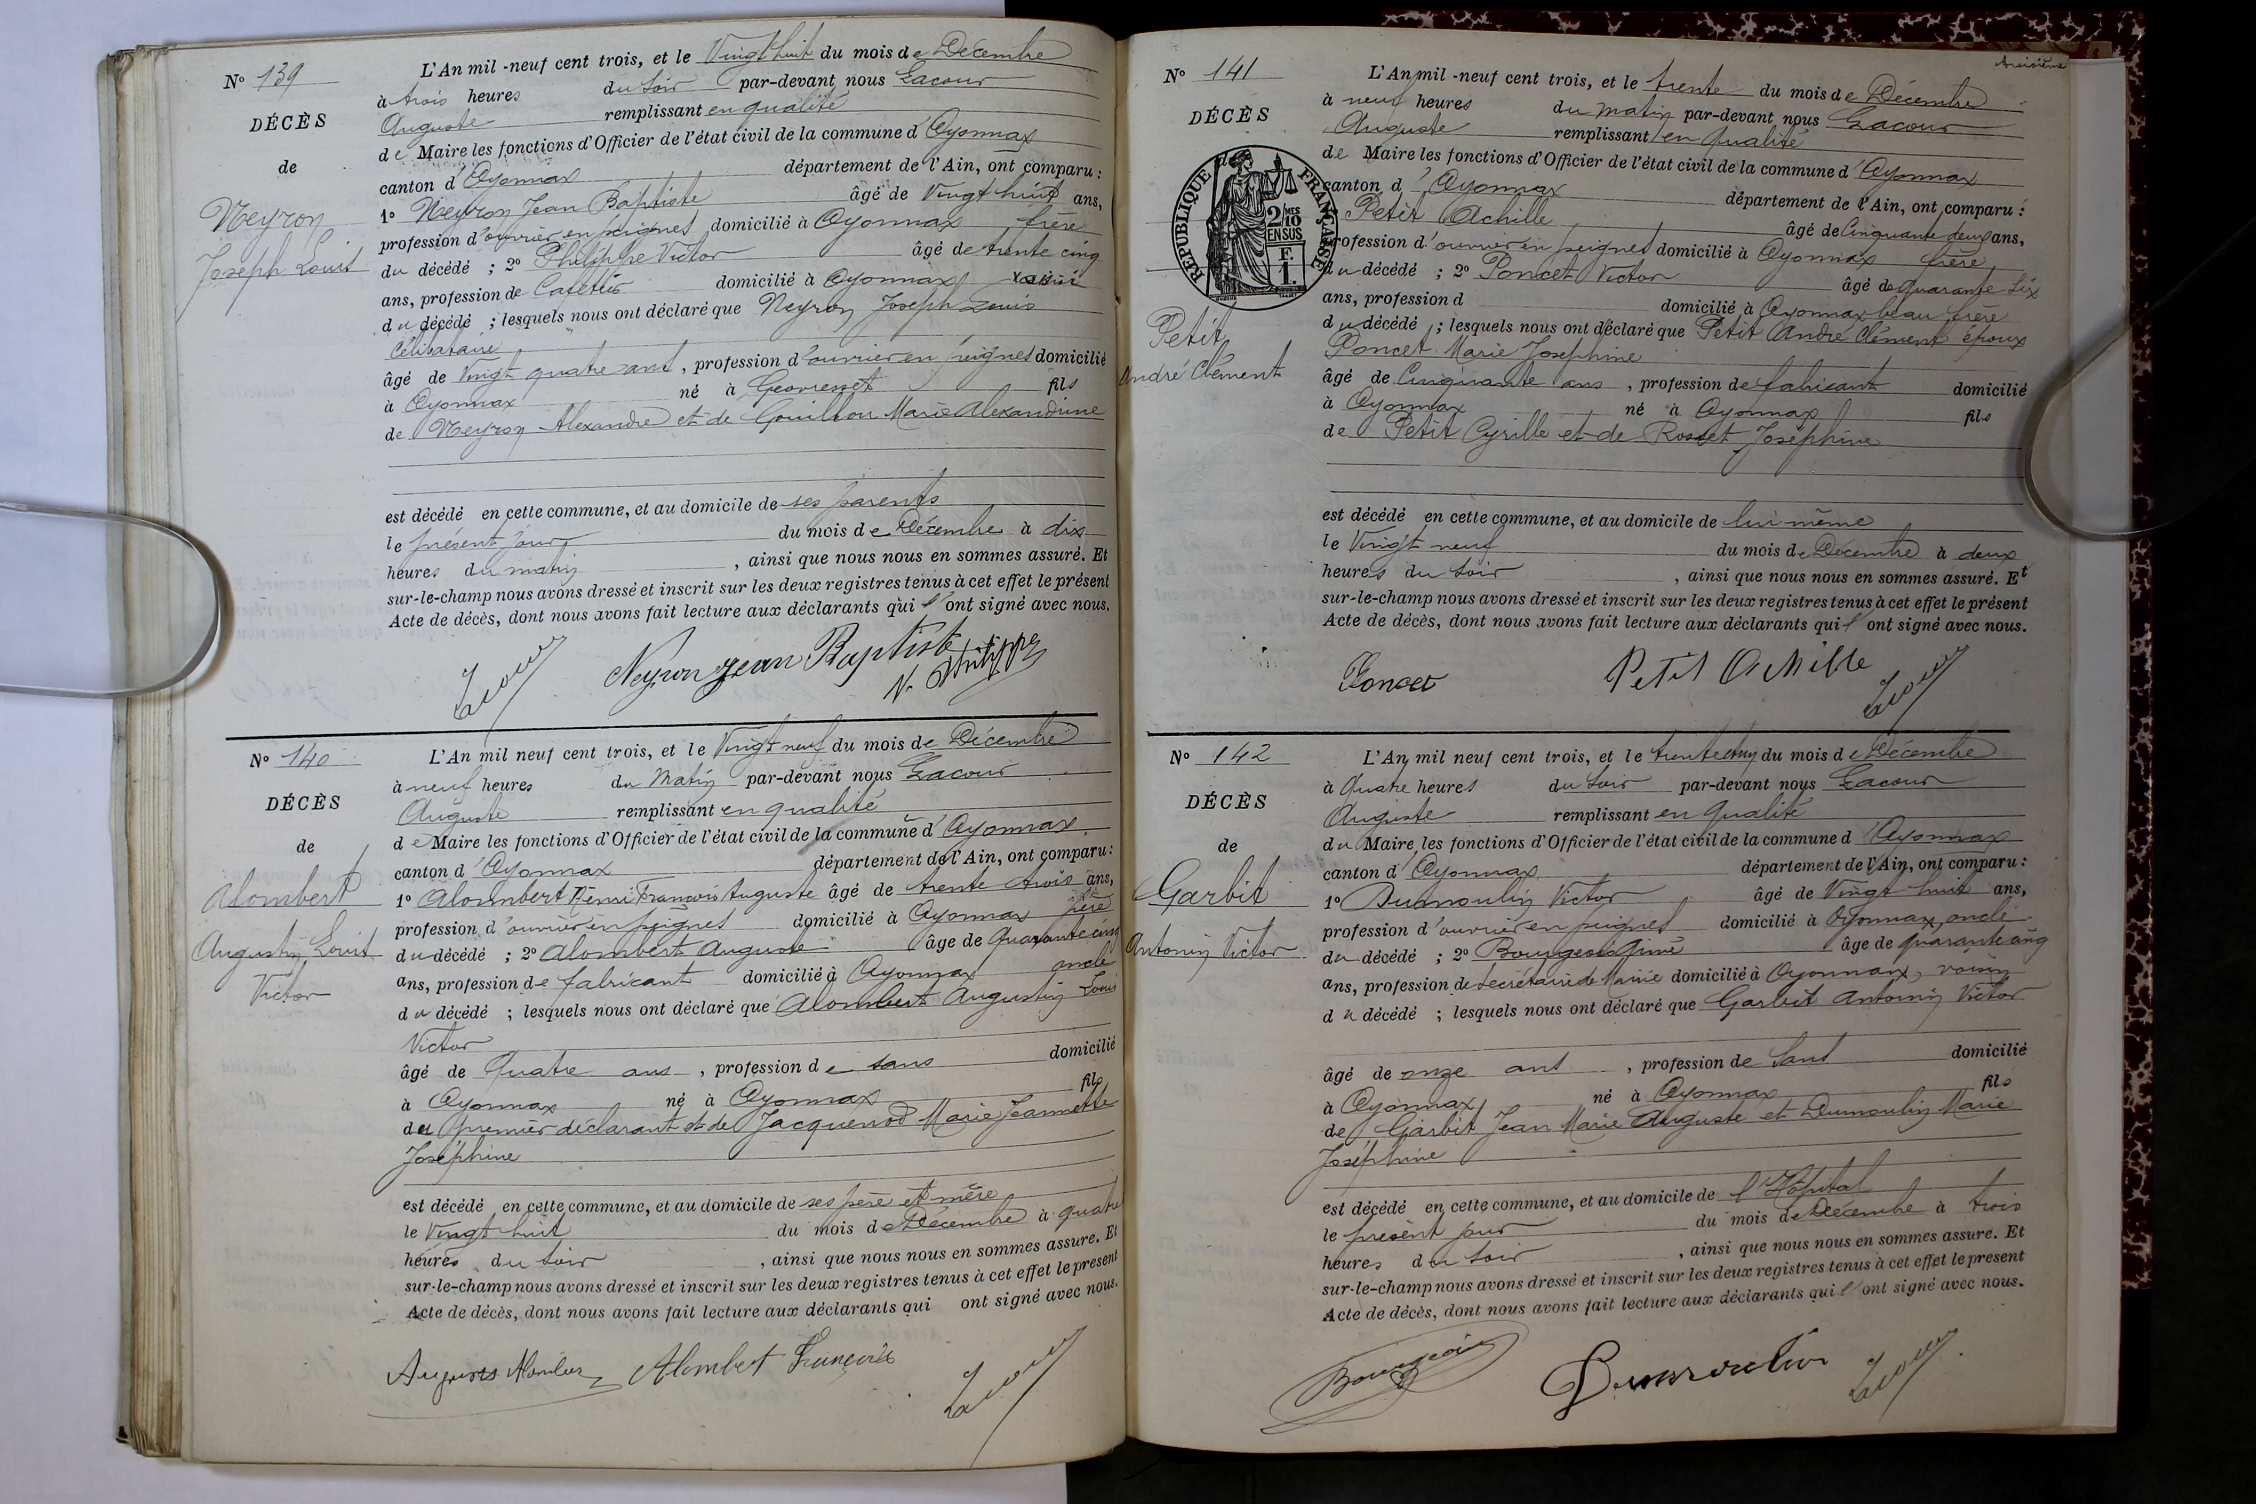 L'An mil-neuf cent trois, et le Vingt huit du mois de Décembre
N° 139
à trois heures du soir par-devant nous Lacour
DÉCÈS
Auguste remplissant en qualité
de Maire les fonctions d'Officier de l'état civil de la commune d'Oyonnax
de
canton d'Oyonnax département de l'Ain, ont comparu :
1° Neyron Jean Baptiste âgé de Vingt huit ans,
Neyron
profession d'ouvrier en peignes domicilié à Oyonnax frère
Joseph Louis
du décédé ; 2° Philippe Victor âgé de trente cinq
ans, profession de Cafetier domicilié à Oyonnax voisin
du décédé ; lesquels nous ont déclaré que Neyron Joseph Louis
Célibataire
âgé de Vingt quatre ans, profession d'ouvrier en peignes domicilié
à Oyonnax né à Geovresset fils
de Neyron Alexandre et de Gouilloux Marie Alexandrine
est décédé en cette commune, et au domicile de ses parents
le présent jour du mois de Décembre à dix
heures du matin, ainsi que nous nous en sommes assuré. Et
sur-le-champ nous avons dressé et inscrit sur les deux registres tenus à cet effet le présent
Acte de décès, dont nous avons fait lecture aux déclarants qui l'ont signé avec nous.
Lacour Neyron Jean Baptiste V. Philippe
L'An mil neuf cent trois, et le Vingt neuf du mois de Décembre
N° 140
à neuf heures du Matin par-devant nous Lacour
DÉCÈS
Auguste remplissant en qualité
de Maire les fonctions d'Officier de l'état civil de la commune d'Oyonnax
de
canton d'Oyonnax département de l'Ain, ont comparu :
Alombert
1° Alombert Henri François Auguste âgé de trente trois ans,
profession d'ouvrier en peignes domicilié à Oyonnax père
Augustin Louis
du décédé ; 2° Alombert Auguste âgé de Quarante cinq
Victor
ans, profession de fabricant domicilié à Oyonnax oncle
du décédé ; lesquels nous ont déclaré que Alombert Augustin Louis
Victor
âgé de Quatre ans, profession de sans domicilié
à Oyonnax né à Oyonnax fils
du premier déclarant et de Jacquenod Marie Jeannette
Joséphine
est décédé en cette commune, et au domicile de ses père et mère
le Vingt huit du mois de Décembre à quatre
heures du soir, ainsi que nous nous en sommes assuré. Et
sur-le-champ nous avons dressé et inscrit sur les deux registres tenus à cet effet le présent
Acte de décès, dont nous avons fait lecture aux déclarants qui ont signé avec nous.
Alombert François Lacour
troisième
L'An mil-neuf cent trois, et le trente du mois de Décembre
N° 141
à neuf heures du matin par-devant nous Lacour
DÉCÈS
Auguste remplissant en qualité
de Maire les fonctions d'Officier de l'état civil de la commune d'Oyonnax
de
canton d'Oyonnax département de l'Ain, ont comparu :
RÉPUBLIQUE FRANÇAISE
2/10 MES
EN SUS
F.
1.
Petit Achille âgé de Cinquante deux ans,
profession d'ouvrier en peignes domicilié à Oyonnax frère
du décédé ; 2° Poncet Victor âgé de quarante six
ans, profession d domicilié à Oyonnax beau frère
Petit
du décédé ; lesquels nous ont déclaré que Petit André Clément époux
Poncet Marie Josephine
André Clément
âgé de Cinquante ans, profession de fabricant domicilié
à Oyonnax né à Oyonnax fils
de Petit Cyrille et de Rosset Joséphine
est décédé en cette commune, et au domicile de lui-même
le Vingt neuf du mois de Décembre à deux
heures du soir, ainsi que nous nous en sommes assuré. Et
sur-le-champ nous avons dressé et inscrit sur les deux registres tenus à cet effet le présent
Acte de décès, dont nous avons fait lecture aux déclarants qui l'ont signé avec nous.
Poncet Petit Achille Lacour
L'An mil neuf cent trois, et le trente et un du mois de Décembre
N° 142
à Quatre heures du soir par-devant nous Lacour
DÉCÈS
Auguste remplissant en qualité
du Maire les fonctions d'Officier de l'état civil de la commune d'Oyonnax
de
canton d'Oyonnax département de l'Ain, ont comparu :
Garbit
1° Dumoulin Victor âgé de Vingt huit ans,
profession d'ouvrier en peignes domicilié à Oyonnax, oncle
Antonin Victor
du décédé ; 2° Bourgeois Aimé âgé de quarante cinq
ans, profession de Secrétaire de Mairie domicilié à Oyonnax, voisin
du décédé ; lesquels nous ont déclaré que Garbit Antonin Victor
âgé de onze ans, profession de Sans domicilié
à Oyonnax né à Oyonnax fils
de Garbit Jean Marie Auguste et Dumoulin Marie
Joséphine
est décédé en cette commune, et au domicile de l'Hôpital
le présent jour du mois de Décembre à trois
heures du soir, ainsi que nous nous en sommes assuré. Et
sur-le-champ nous avons dressé et inscrit sur les deux registres tenus à cet effet le présent
Acte de décès, dont nous avons fait lecture aux déclarants qui l'ont signé avec nous.
Bourgeois Dumoulin Lacour